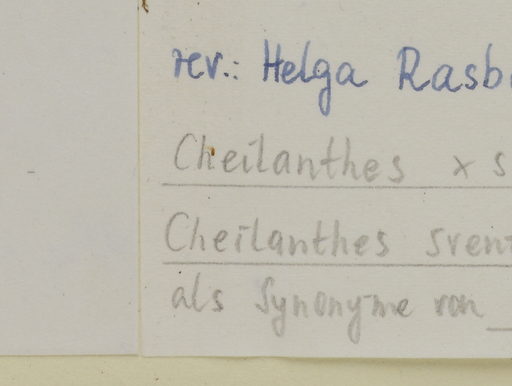 rev.: Helga Rasb
Cheilanthes x s
Cheilanthes sven
als Synonyme von